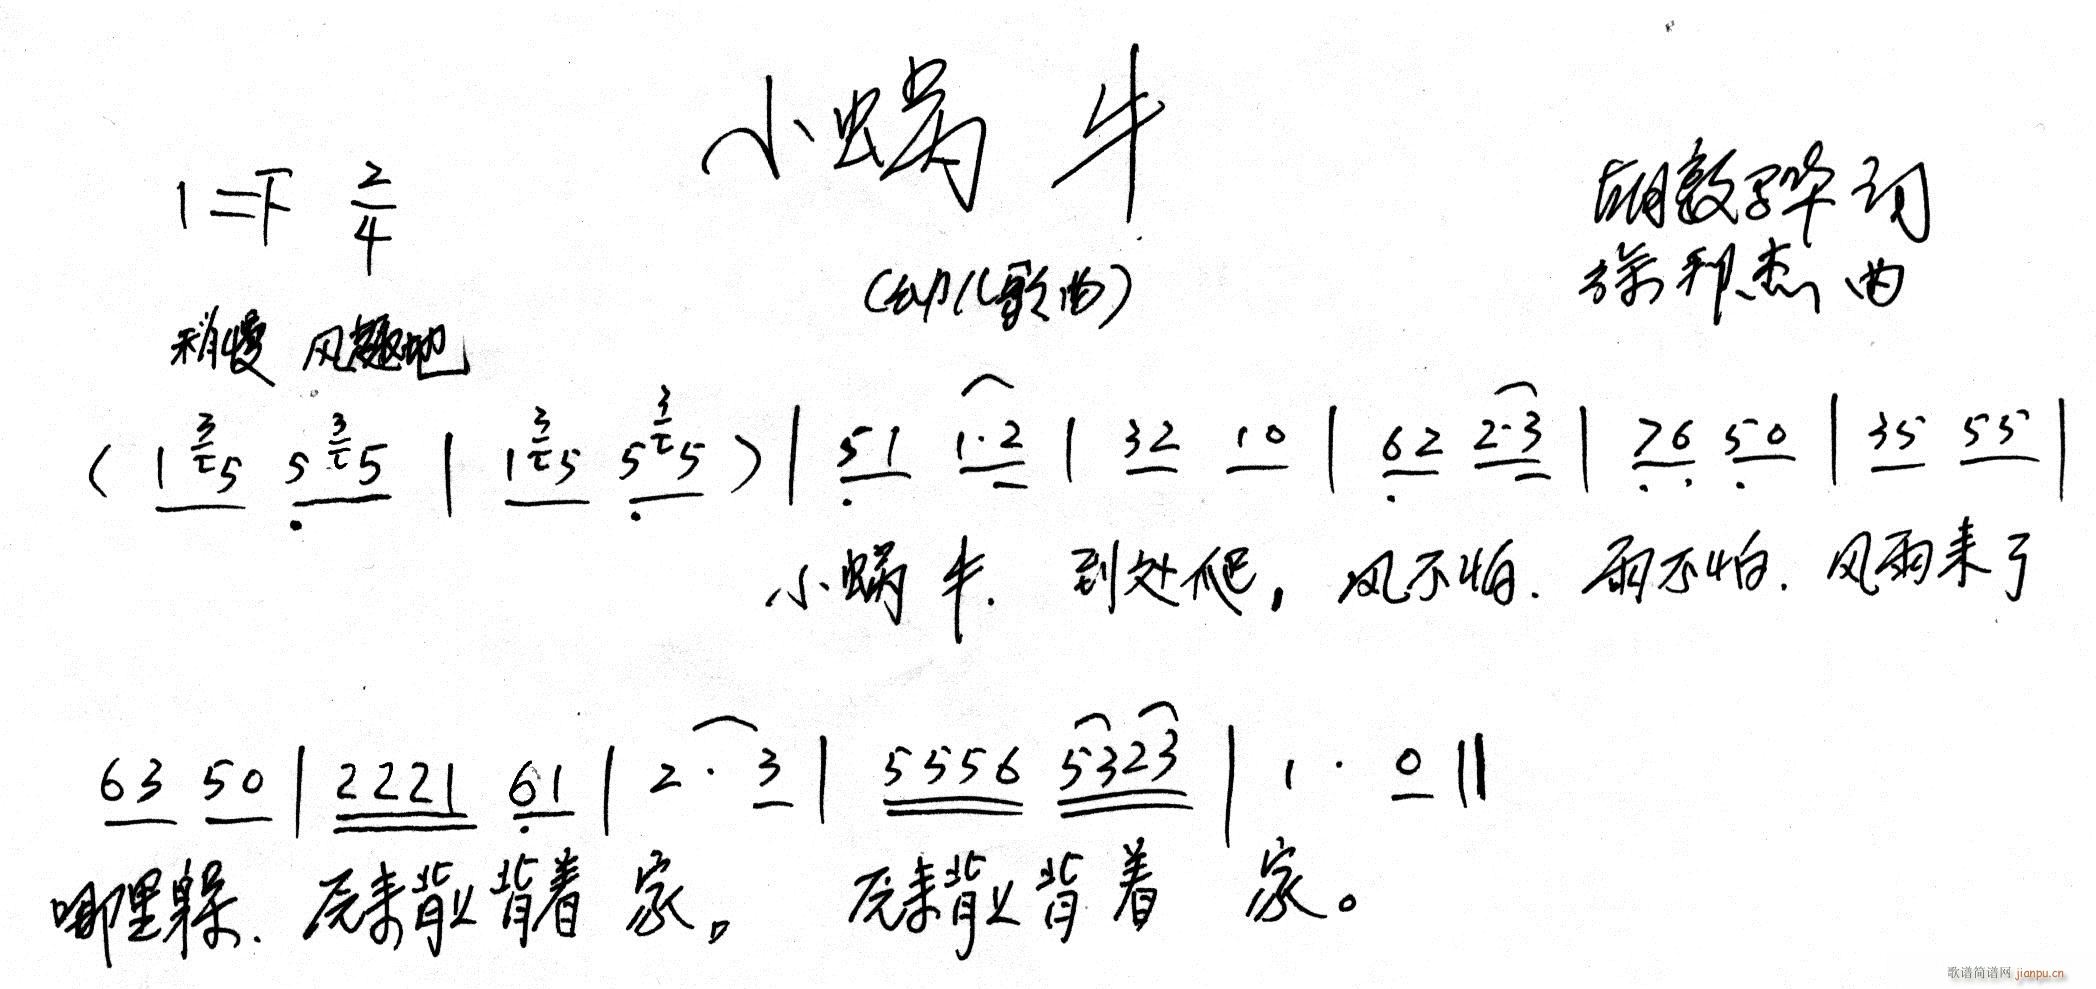 小蜗牛
1=F 2/4
(幼儿歌曲)
胡敦骅 词
徐邦杰 曲
稍慢 风趣地
( 1 3 5 5 3 5 | 1 3 5 5 3 5 ) | 5 1 1·2 | 3 2 1 0 | 6 2 2·3 | 7 6 5 0 | 3 5 5 5 |
小蜗牛. 到处爬, 风不怕. 雨不怕. 风雨来了
6 3 5 0 | 2 2 2 1 6 1 | 2 · 3 | 5 5 5 6 5 3 2 3 | 1 · 0 ||
哪里躲. 原来背上背着家。 原来背上背着 家。
歌谱简谱网 jianpu.cn